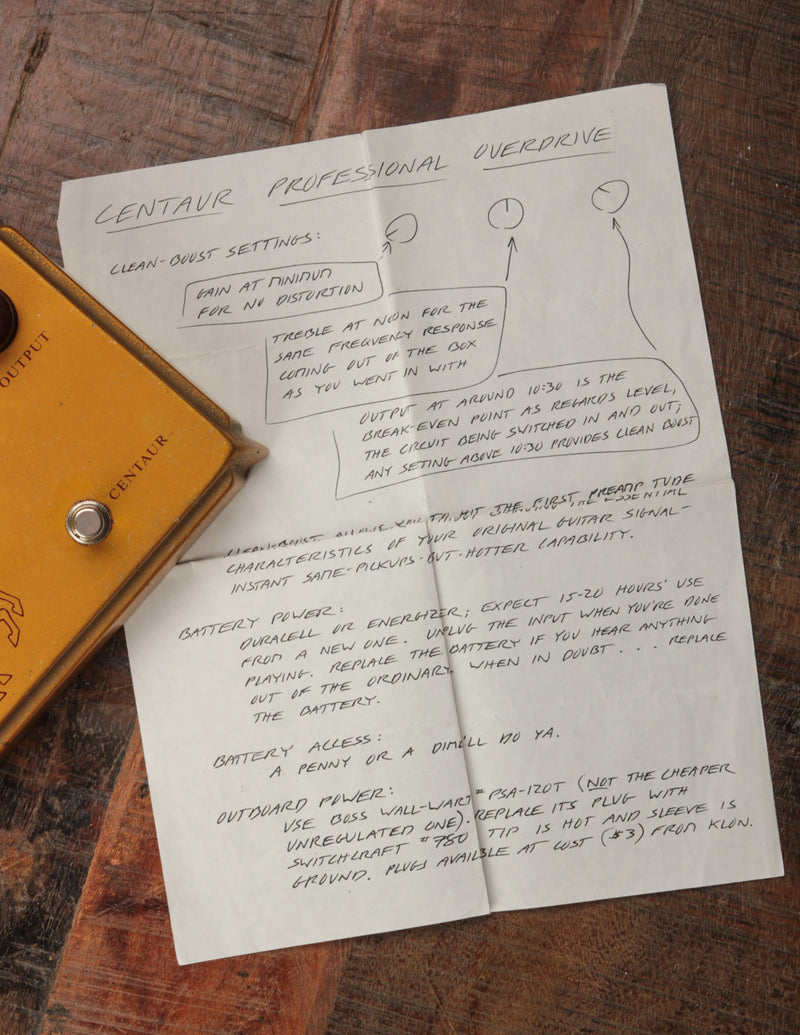 CENTAUR PROFESSIONAL OVERDRIVE
CLEAN-BOOST SETTINGS:
GAIN AT MINIMUM
FOR NO DISTORTION
TREBLE AT NOON FOR THE
SAME FREQUENCY RESPONSE
COMING OUT OF THE BOX
AS YOU WENT IN WITH
OUTPUT AT AROUND 10:30 IS THE
BREAK-EVEN POINT AS REGARDS LEVEL,
THE CIRCUIT BEING SWITCHED IN AND OUT;
ANY SETTING ABOVE 10:30 PROVIDES CLEAN BOOST
CLEAN-BOOST YOU THE FIRST PREAMP TUBE
THE ESSENTIAL
CHARACTERISTICS OF YOUR ORIGINAL GUITAR SIGNAL-
INSTANT SAME-PICKUPS-BUT-HOTTER CAPABILITY.
BATTERY POWER:
DURACELL OR ENERGIZER; EXPECT 15-20 HOURS' USE
FROM A NEW ONE. UNPLUG THE INPUT WHEN YOU'RE DONE
PLAYING. REPLACE THE BATTERY IF YOU HEAR ANYTHING
OUT OF THE ORDINARY. WHEN IN DOUBT . . . REPLACE
THE BATTERY.
BATTERY ACCESS:
A PENNY OR A DIME'LL DO YA.
OUTBOARD POWER:
USE BOSS WALL-WART # PSA-120T (NOT THE CHEAPER
UNREGULATED ONE). REPLACE ITS PLUG WITH
SWITCHCRAFT #780 TIP IS HOT AND SLEEVE IS
GROUND. PLUGS AVAILBLE AT COST ($3) FROM KLON.
OUTPUT
CENTAUR